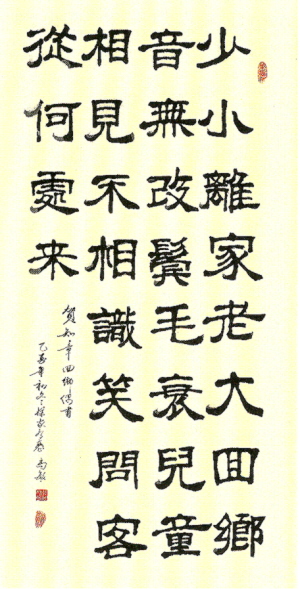 少小離家老大回鄉
音無改鬢毛衰兒童
相見不相識笑問客
從何處来
賀知章回鄉偶書